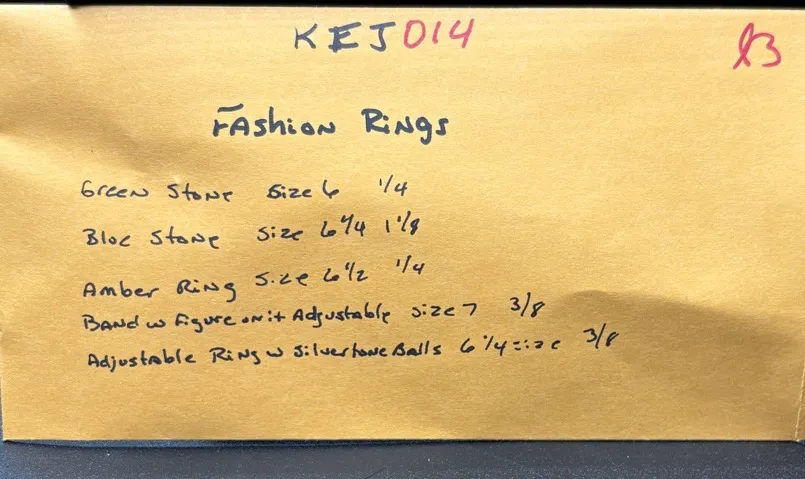 KEJ014
Fashion Rings
Green Stone Size 6 1/4
Bloe Stone Size 6 1/4 1 1/8
Amber Ring Size 6 1/2 1/4
Band w Figure on it Adjustable size 7 3/8
Adjustable Ring w Silvertone Balls 6 1/4 size 3/8